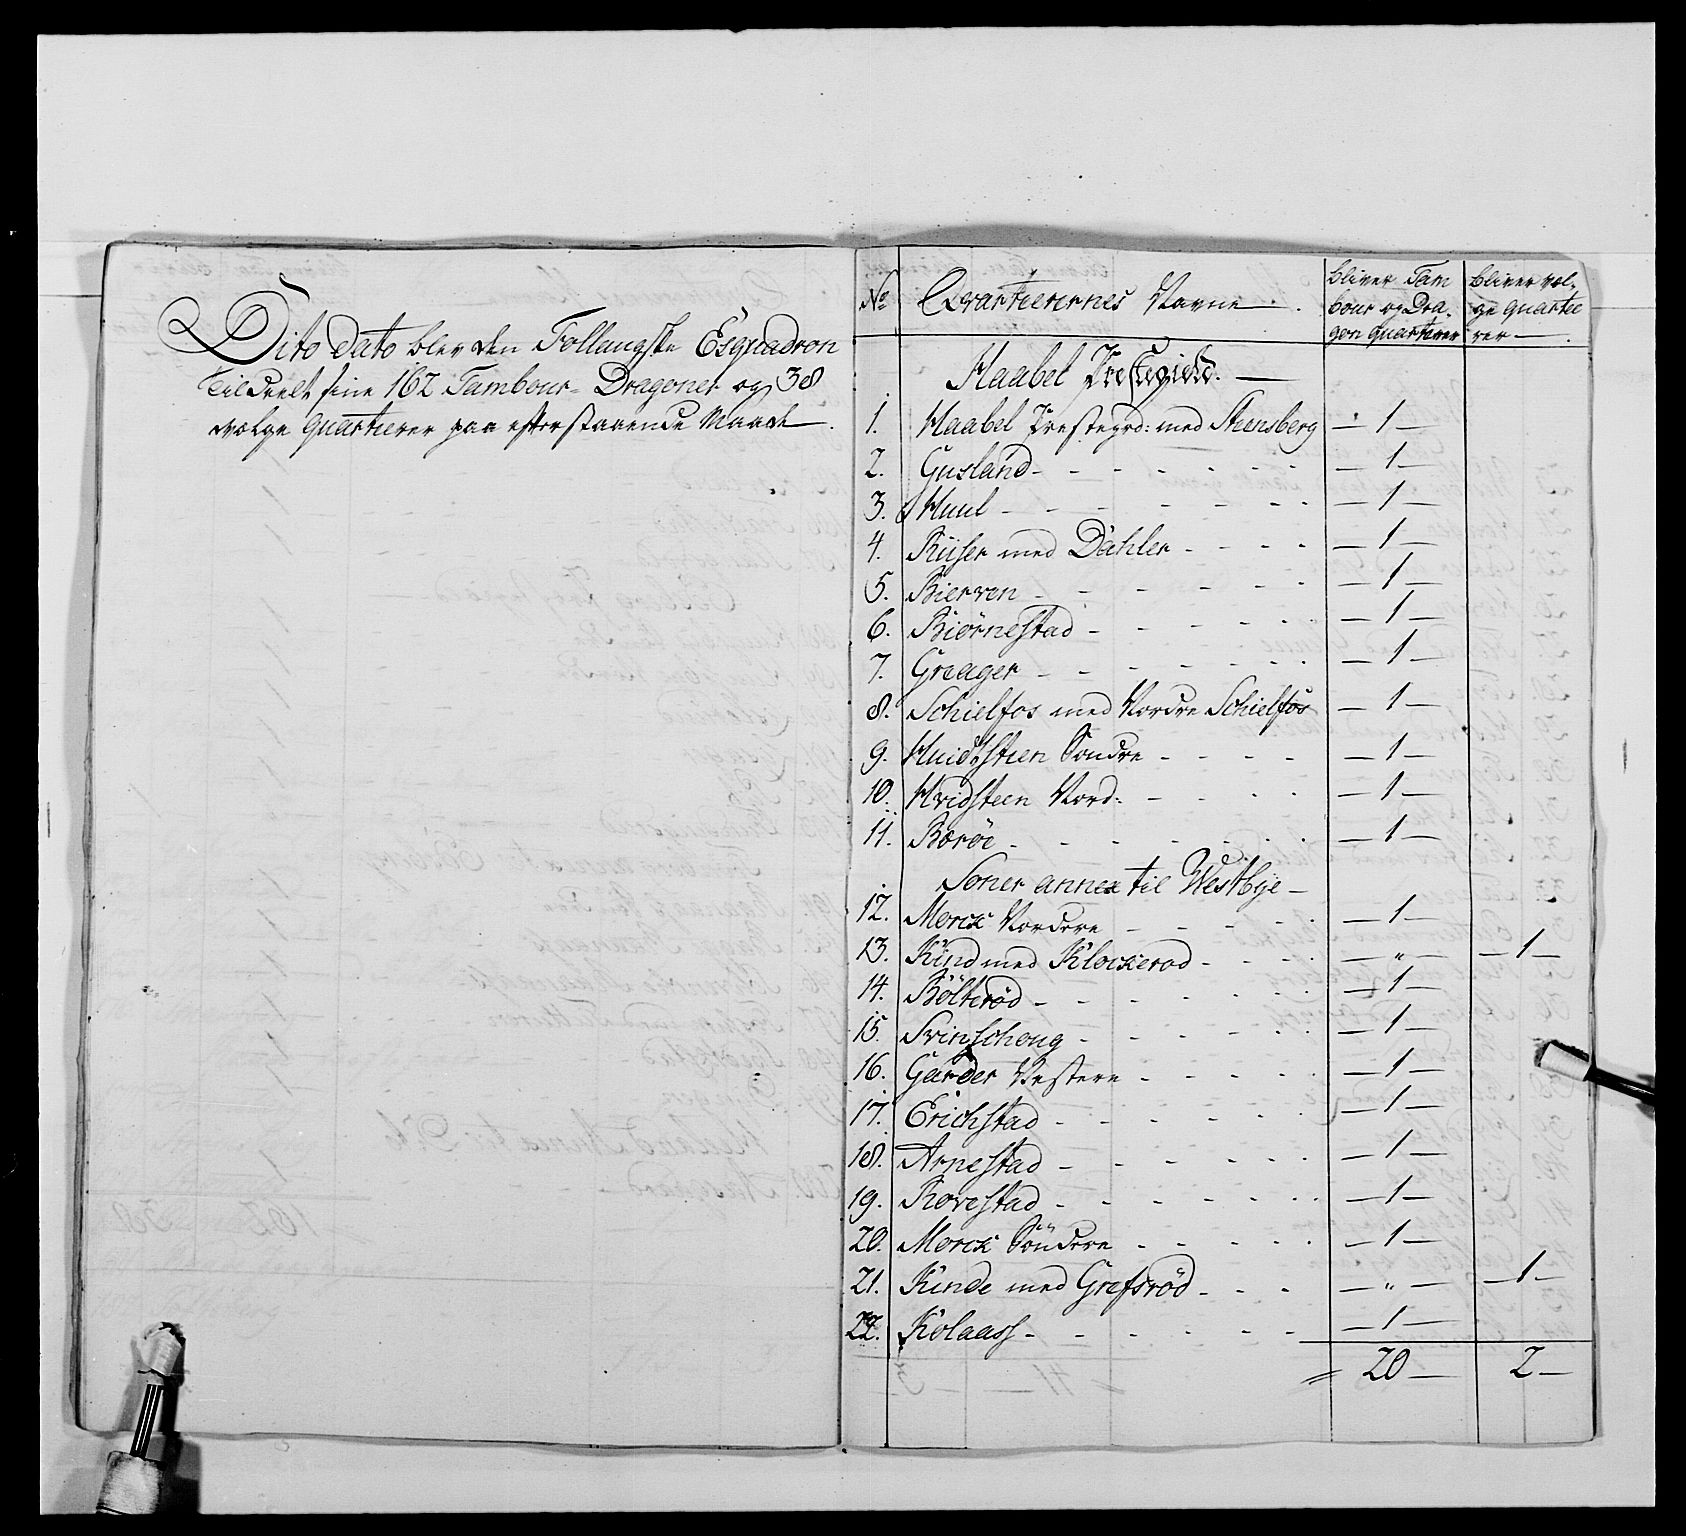 Dito Dato blev den Follangske Esquadron
tildeelt sine 162 Tambour- Dragoner og 38
vælge Quartierer paa efterstaaende Maade.
No Qvarteerernes Navne. bliver Tambour og Dragon Quartierer bliver vælge Quartierer
Haabel Præstegield.
1. Haabel Præstegrd: med Steensberg — 1 —
2. Gusland - - - — 1 —
3. Huul - - - — 1 —
4. Riiser med Dahler - - - — 1 —
5. Bierven - - - — 1 —
6. Biørnestad - - - — 1 —
7. Greager - - - — 1 —
8. Schielfos med Nordre Schielfos — 1 —
9. Huidtsteen Søndre - - - — 1 —
10. Hvidsteen Nord: - - - — 1 —
11. Borøe - - - — 1 —
Soner annex til Westbye —
12. Morck Nordere - - - — 1 —
13. Kind med Klockerød - - - — " — — 1 —
14. Bölterød - - - — 1 —
15. Svinschoug - - - — 1 —
16. Garder Vestere - - - — 1 —
17. Erichstad - - - — 1 —
18. Arnestad - - - — 1 —
19. Rovestad - - - — 1 —
20. Morck Söndere - - - — 1 —
21. Kinde med Grefsröd - - - — " — — 1 —
22. Kolaass - - - — 1 —
20 — 2 —